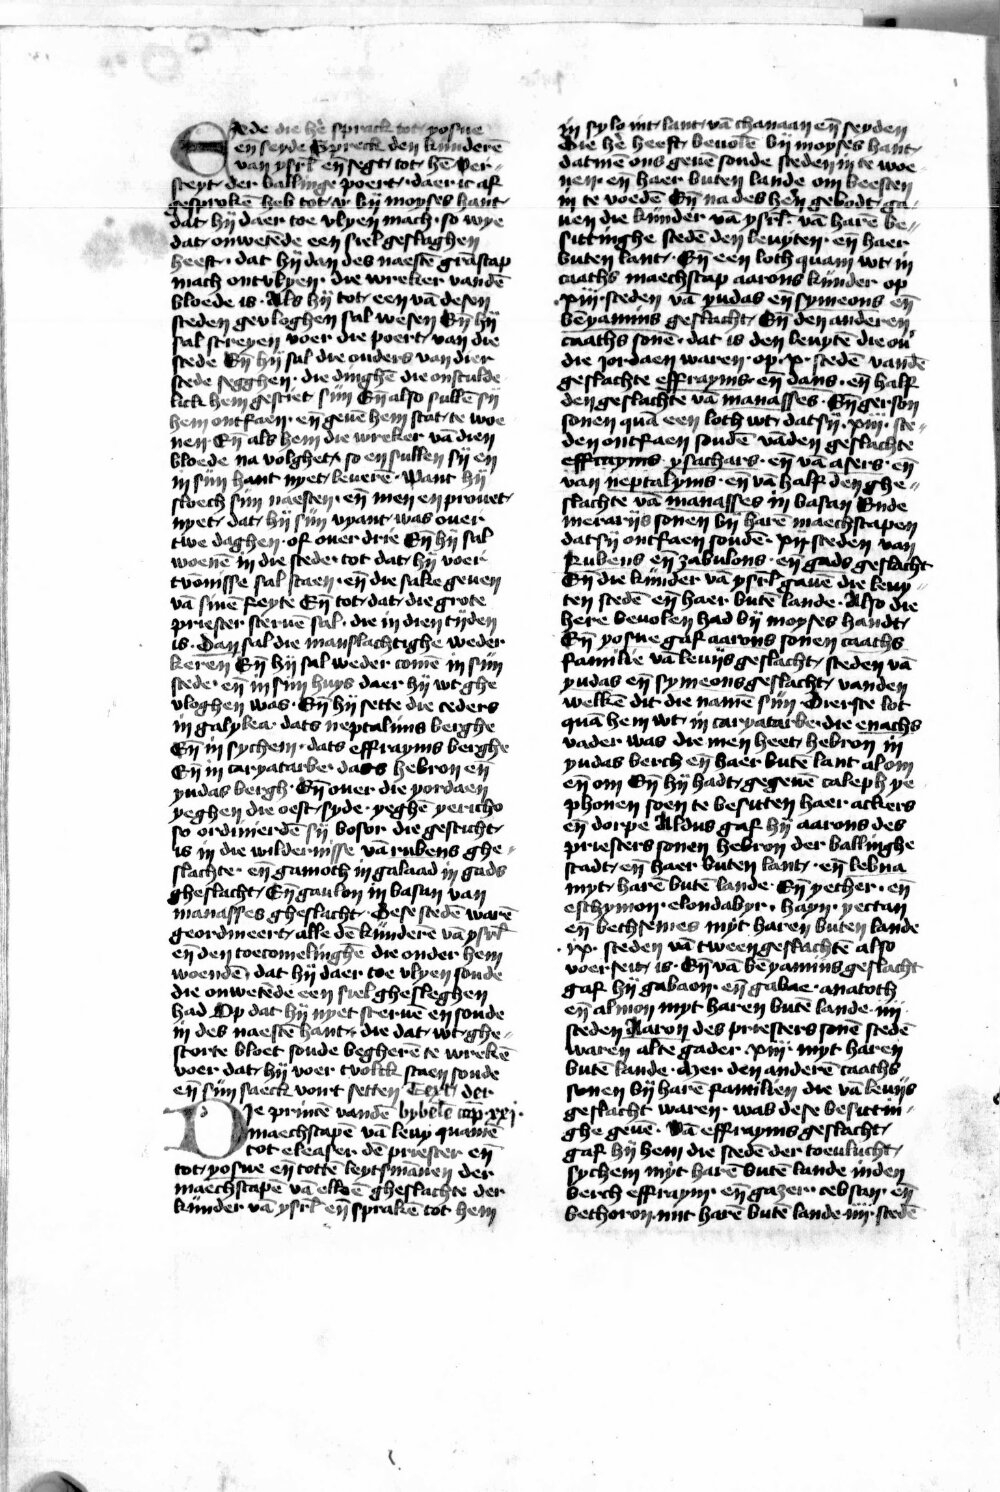 Ende die hē sprack tot yosue
en seyde Spreck den kinderē
van ysrl̄ en̄ segt tot hē Ver-
steyt der ballinge poert · daer ic af
gesprokē heb tot v̄ bij moyses hant
dat hij daer toe vlyen mach · so wye
dat onwetēde een siel geslaghen
heeft · dat hij dan des naestē gramscap
mach ontvlyen · die wreker vandē
bloede is · Als hij tot een vā desen
steden gevloghen sal wesen En̄ hij
sal streyen voer die poert van die
stede En̄ hij sal die ouders van dier
stede segghen · die dinghē die onsculde
lick hem gesciet sijn En̄ also sullē sij
hem ontfaen · en̄ gevē hem stat te woe
nen · En̄ als hem die wreker vā dien
bloede na volghet so en sullen sij en
in sijn hant nyet leverē · Want hij
sloech sijn naesten · en̄ men en prouet
nyet dat hij sijn vyant was over
twe daghen · of over drie En̄ hij sal
woenē in die stede · tot dat hij voer
tvonisse sal staen · en̄ die sake geven
vā sinē feyte En̄ tot dat die grote
priester stervē sal · die in dien tijden
is · Dan sal die manslachtighe weder
keren En̄ hij sal weder comē in sijn
stede · en̄ in sijn huys daer hij wt ghe
vloghen was · En̄ hij sette die ceders
in galylea · dats neptalims berghe
En̄ in sychem · dats effrayms berghe
En̄ in caryatarbe · dats hebron en̄
yudas bergh · En̄ over die yordaen
yeghen die oest syde · yeghē yericho
so ordinierdē sij bosor die gesticht
is in die wildernisse vā rubens ghe-
slachte · en̄ gamoth in galaad in gads
gheslacht En̄ gaulon in basan van
manasses gheslacht · Dese stedē warē
geordineert alle dē kinderē vā ysrl̄
en̄ den toecomelinghē die onder hem
woendē · dat hij daer toe vlyen soude
die onwetēde een siel ghesleghen
had Op dat hij nyet stervē en soude
in des naestē hant · die dat wt ghe-
storte bloet soude begherē te wrekē
voer dat hij voer tvolck staen soude
en̄ sijn saeck voirt setten Text der
Die princē vandē bybelē cap̄ · xxi ·
maechscapē vā levy quamē
tot eleaser dē priester en̄
tot yosue en̄ tottē leytsmānen der
maechscapē vā elkē gheslachte der
kinder vā ysrl̄ en̄ sprakē tot hem
in sylo int lant vā chanaan en̄ seyden
Die hē heeft bevolē bij moyses hant
datmē ons gevē soude steden in te woe
nen · en̄ haer buten lande om beesten
in te voedē En̄ na des hērn gebodt ga-
ven die kinder vā ysrl̄ · vā harē be-
sittinghe stedē den levyten · en̄ haer
buten lant · En̄ een loth quam wt in
caaths maechscap aarons kinder op
· xiij · steden vā yudas en̄ symeons en̄
bēyamins geslacht En̄ den anderen
caaths sonē · dat is den levytē die ou'
die jordaen waren · op · x · stedē vandē
geslachte effrayms · en̄ dans · en̄ half
den geslachte vā manasses · En̄ gerson
sonen quā een loth wt datsij · xiij · ste-
den ontfaen soudē vādēn geslachte
effrayms · ysachars · en̄ vā asers · en̄
van neptalyms · en̄ vā half den ghe-
slachte vā manasses in basan Ende
merarijs sonen bij harē maechscapen
datsij ontfaen soudē · xij · steden van
Rubens en̄ zabulons · en̄ gads geslacht
En̄ die kinder vā ysrl̄ gavē die levy-
ten stedē en̄ haer butē lande · Also die
here bevolen had bij moyses handt
En̄ yosue gaf aarons sonen caaths
familie vā levijs geslacht steden vā
yudas en̄ symeons geslacht vanden
welkē dit die namē sijn · Dierste lot
quā hem wt in caryatarbe · die enachs
vader was die men heet hebron in
yudas berch en̄ haer butē lant al om
en̄ om En̄ hij hadt gegevē caleph ye
phonen soen te besitten haer ackers
en̄ dorpē Aldus gaf hij aarons des
priesters sonen hebron der ballinghe
stadt en̄ haer buten lant · en̄ lebna
myt harē butē lande · En̄ yether · en̄
esthymon · elondabyr · hayn · yectan
en̄ bethsemes myt haren buten lande
· ix · steden vā tween geslachtē also
voer seit is · En̄ vā bēyamins geslacht
gaf hij gabaon · en̄ gabae · anatoth
en̄ almon myt haren butē lande · iiij
steden Aaron des priesters sonē stedē
waren alte gader · xiij · myt haren
butē lande · Mer den anderē caaths
sonen bij harē familien die vā levijs
geslacht waren · was dese besittin-
ghe gevē · Vā effrayms geslacht
gaf hij hem die stedē der toevlucht
sychem myt harē butē lande inden
berch effraym · en̄ gazer · cebsan · en̄
bethoron · mit harē butē lande · iiij · stedē